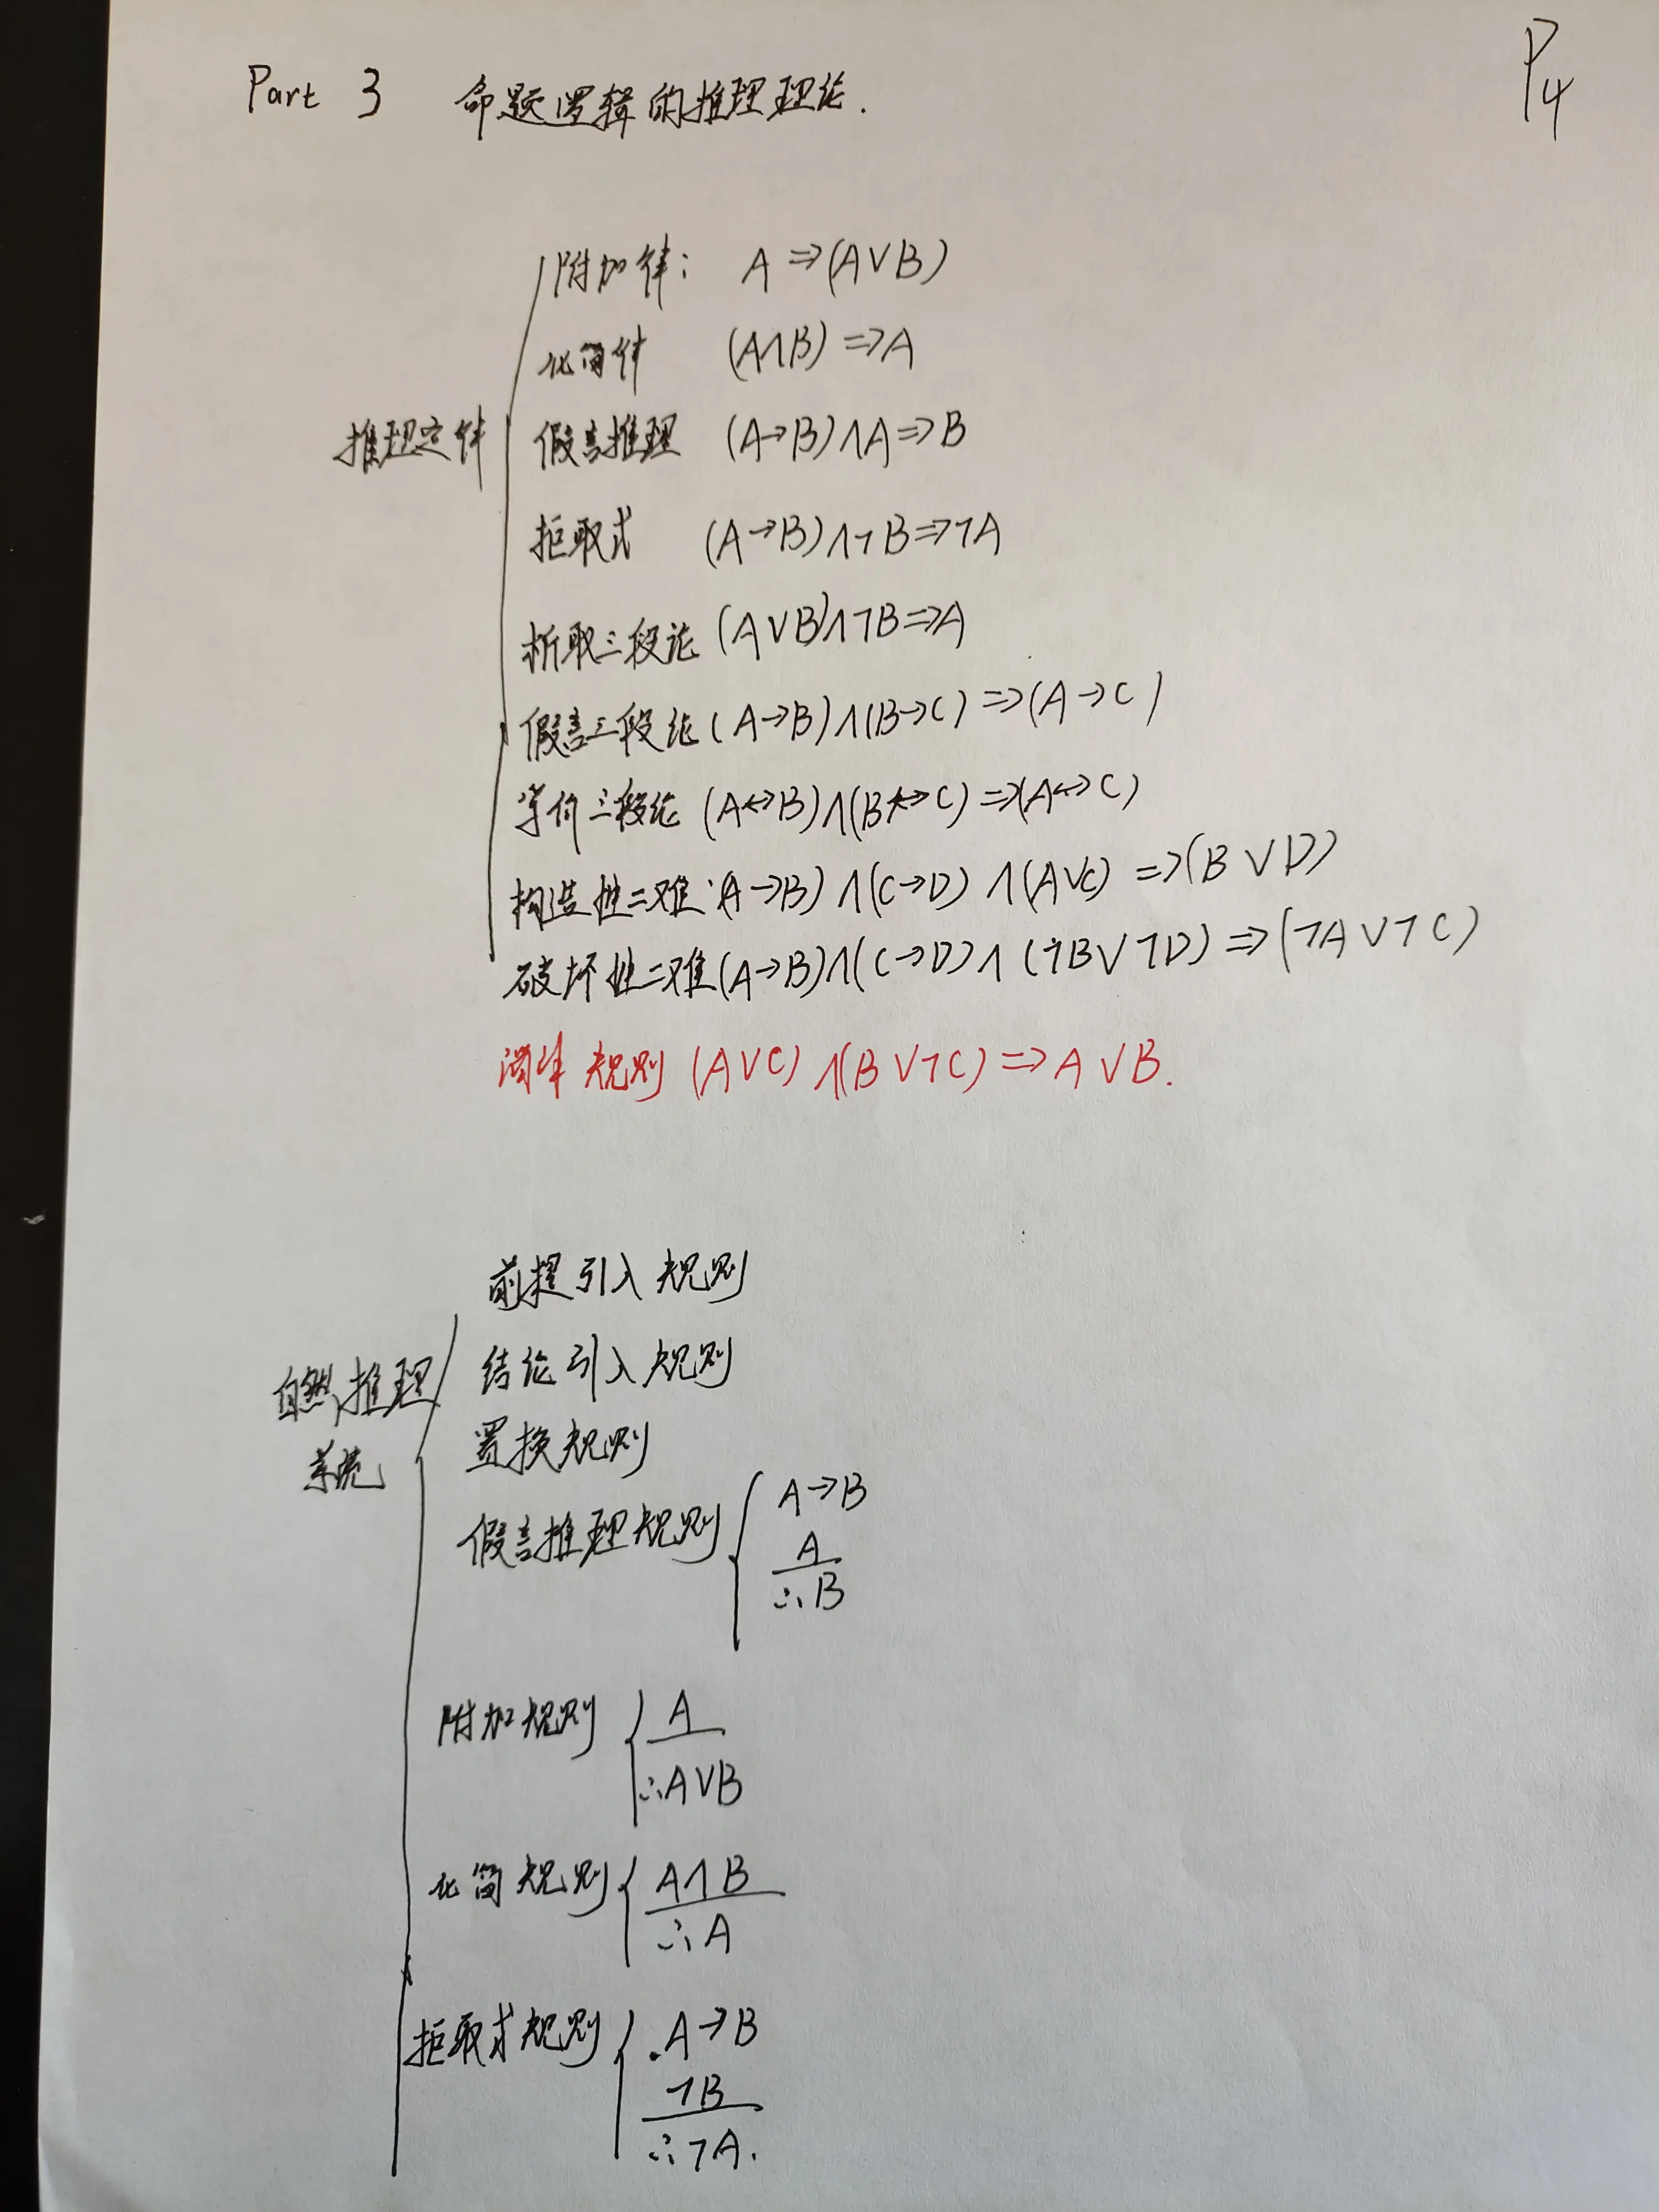 Part 3 命题逻辑的推理理论.
P4
推理定律
附加律: A⇒(A∨B)
化简律 (A∧B)⇒A
假言推理 (A→B)∧A⇒B
拒取式 (A→B)∧¬B⇒¬A
析取三段论 (A∨B)∧¬B⇒A
假言三段论 (A→B)∧(B→C)⇒(A→C)
等价三段论 (A↔B)∧(B↔C)⇒(A↔C)
构造性二难 (A→B)∧(C→D)∧(A∨C)⇒(B∨D)
破坏性二难 (A→B)∧(C→D)∧(¬B∨¬D)⇒(¬A∨¬C)
规则 (A∨C)∧(B∨¬C)⇒A∨B.
自然推理
系统
前提引入规则
结论引入规则
置换规则
假言推理规则 A→B
A
∴B
附加规则 A
∴A∨B
化简规则 A∧B
∴A
拒取式规则 A→B
¬B
∴¬A.